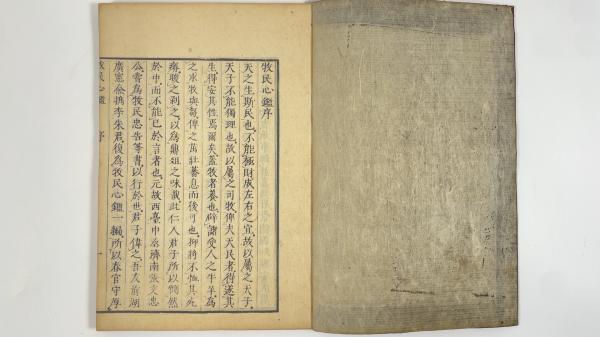 牧民心鑑序
天之生斯民也不能極財成左右之宜故以屬之天子
天子不能獨理也故以屬之司牧俾夫天民者得遂其
生得安其性焉爾矣蓋牧者養也辟諸受人之牛羊為
之求牧與芻俾之茁壯蕃息而後可也抑將不恤其死
瘠駿之刹之以為鼎俎之味哉此仁人君子所以惻然
於中而不能已於言者也元故西臺中丞濟南張文忠
公嘗為牧民忠告等書以行於世君子偉之吾友前湖
廣憲僉括李朱君復為牧民心鑑一編所以春官守厚
牧民心鑑 序 一